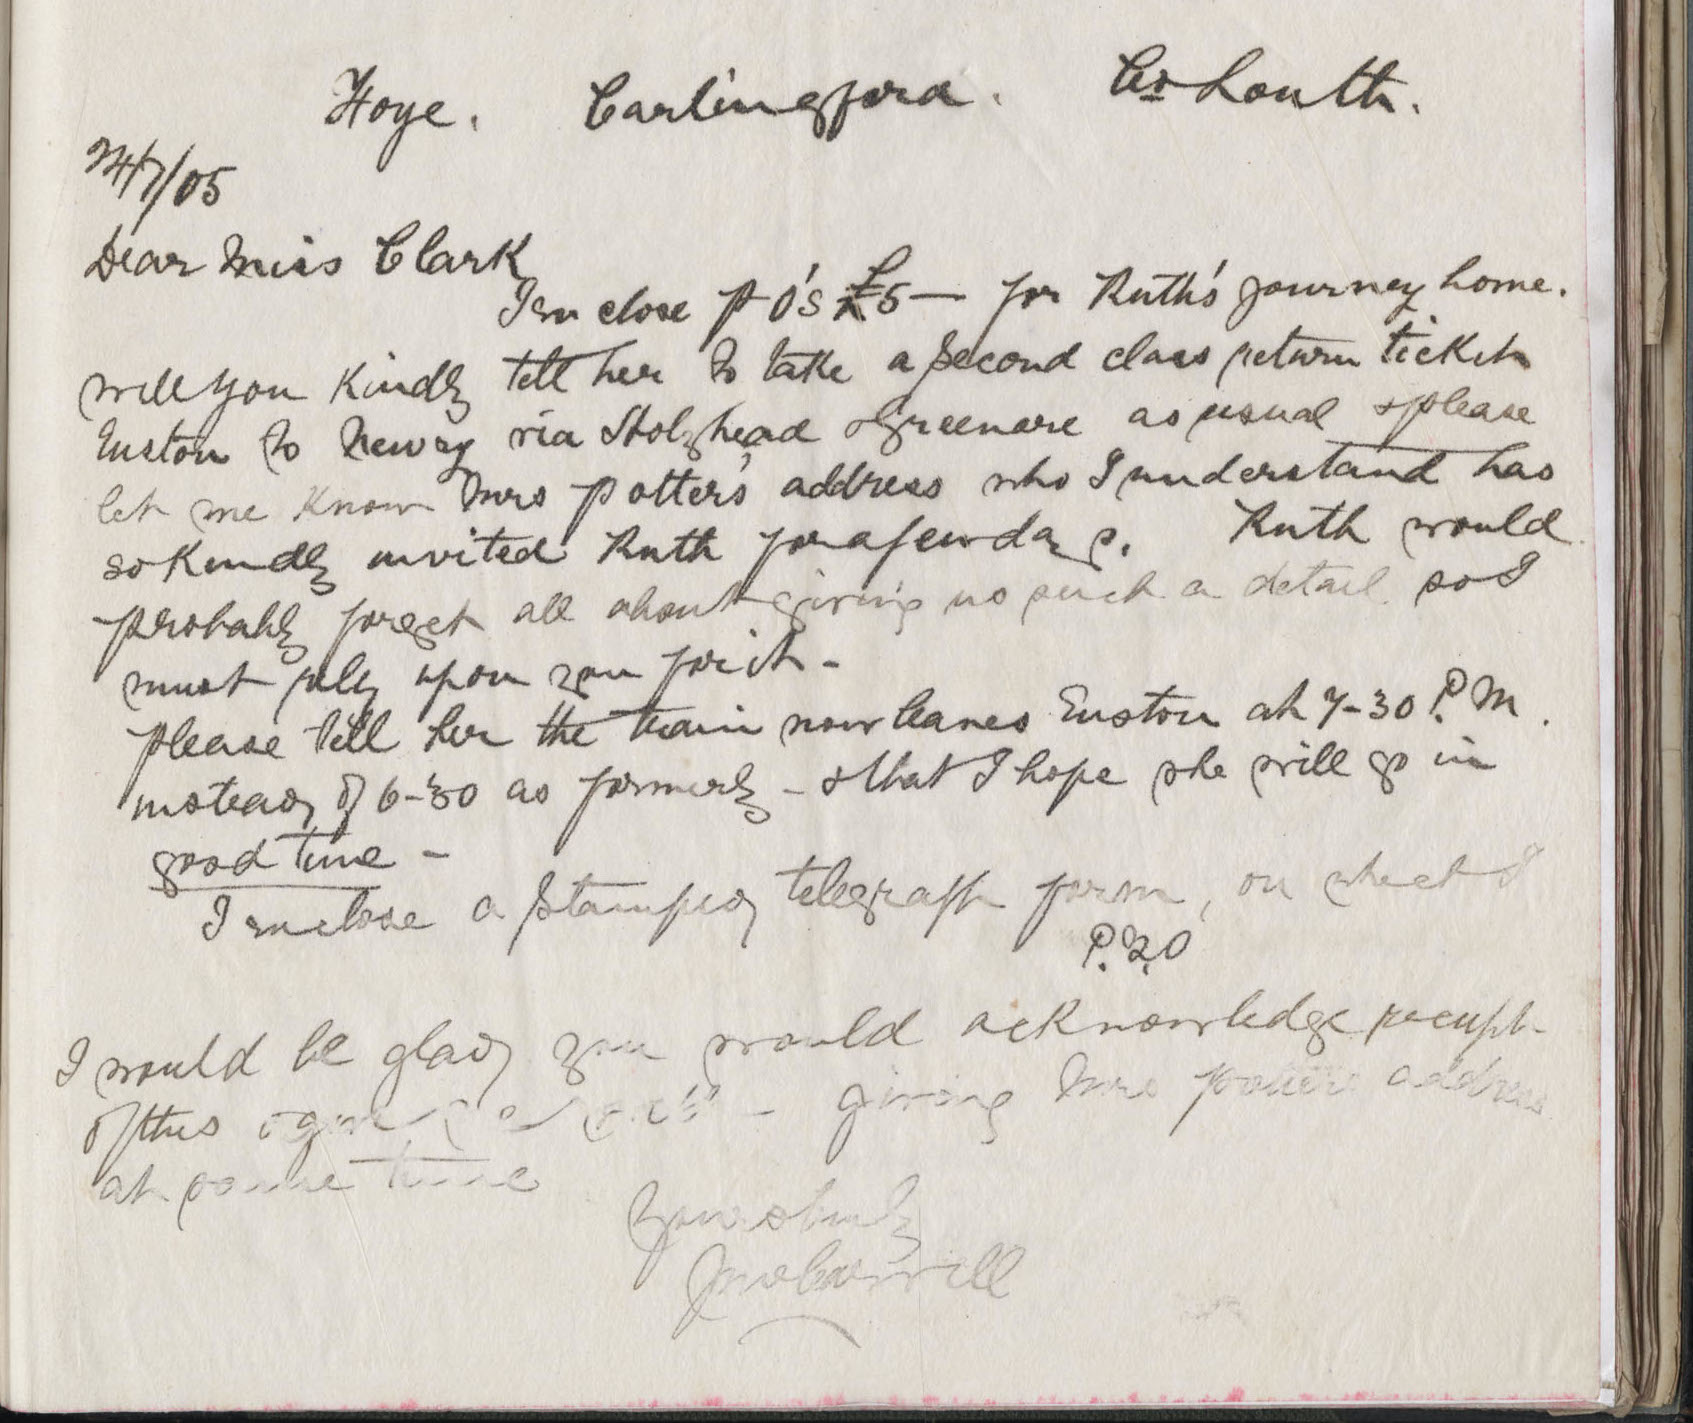 Hoye. Carlingford. Co Louth.
24/7/05
Dear Miss Clark
I enclose P O's £5 — for Ruth's journey home.
will you kindly tell her to take a second class return ticket
Euston to Newry via Holyhead & Greenore as usual & please
let me know Mrs Potter's address who I understand has
so kindly invited Ruth for a few days. Ruth would
probably forget all about giving us such a detail so I
must rely upon you for it -
please tell her the train now leaves Euston at 7-30 P.M.
instead of 6-30 as formerly - & that I hope she will go in
good time -
I enclose a stamped telegraph form, on which I
P.T.O
I would be glad you would acknowledge receipt
of this - giving Mrs Potters address
at same time
Yours truly